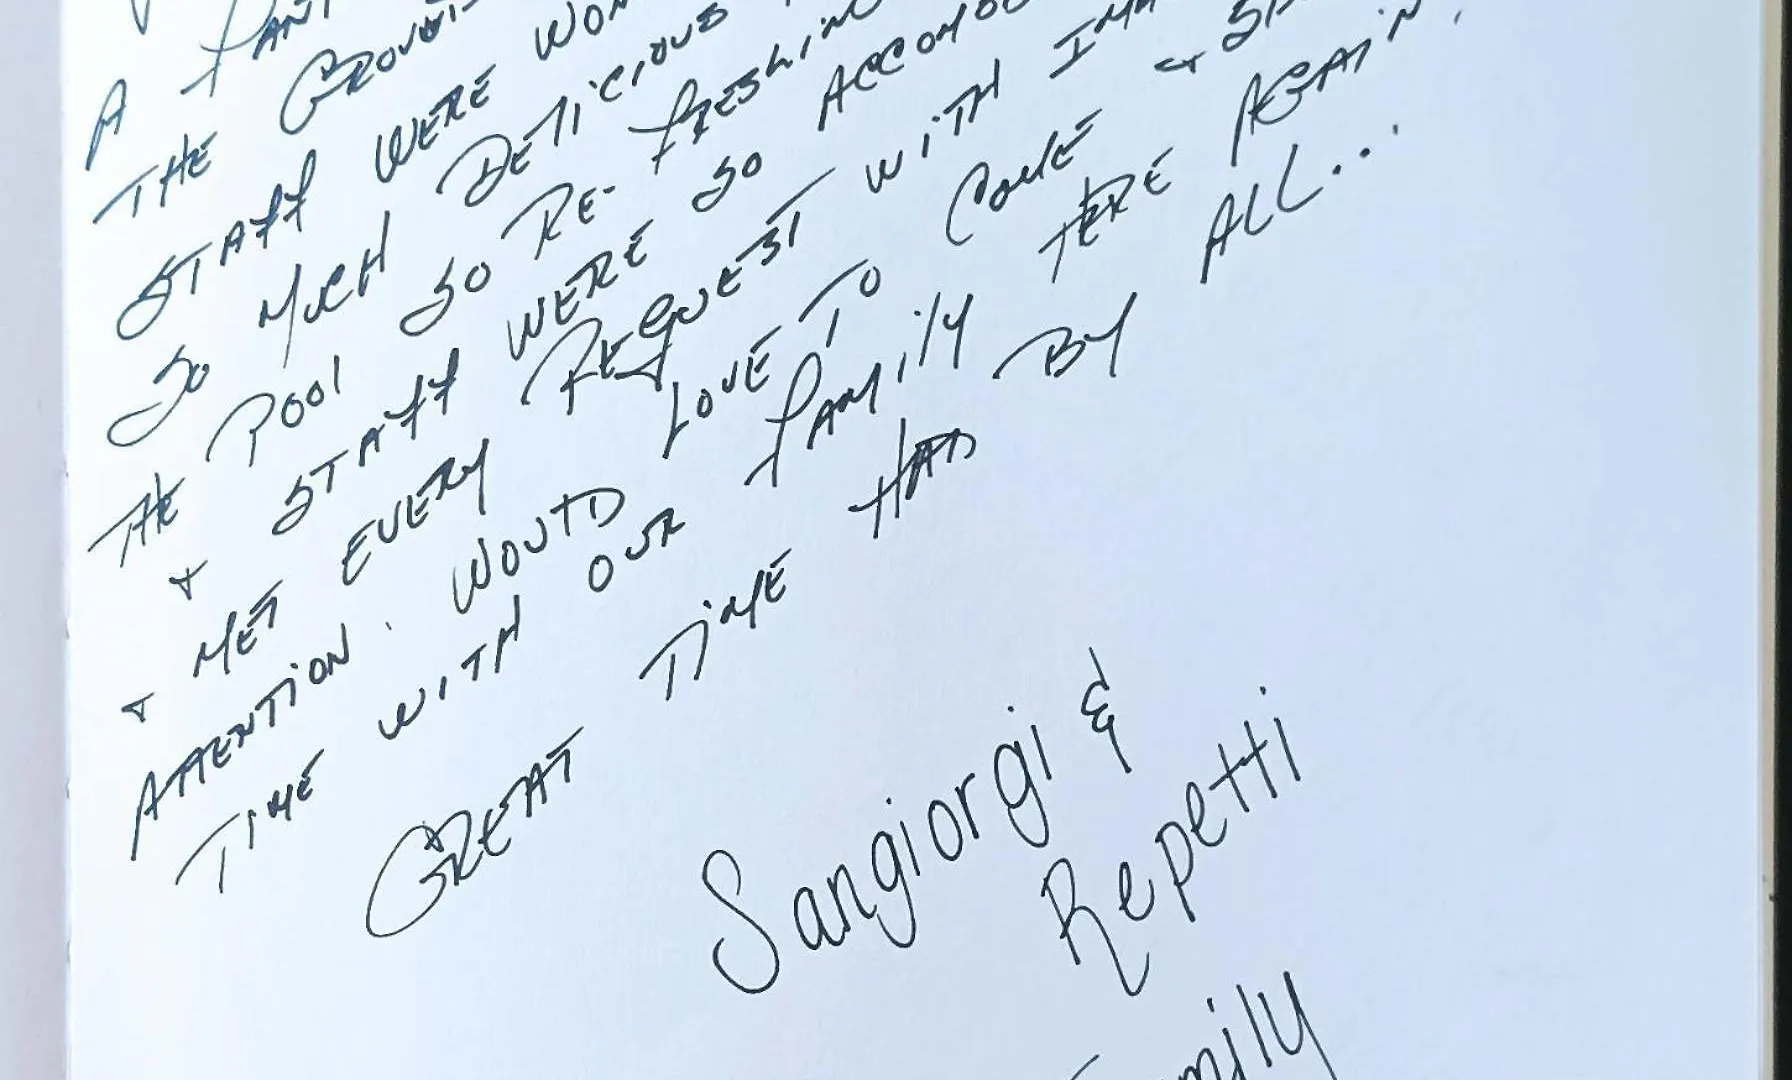 A
THE
STAFF WERE
SO MUCH DELICIOUS
THE POOL SO RE-FRESHIN
& STAFF WERE SO ACCOMO
& MET EVERY REQUEST WITH IMM
ATTENTION. WOULD LOVE TO COME &
TIME WITH OUR FAMILY HERE AGAIN.
GREAT TIME HAD BY ALL...
Sangiorgi &
Repetti
mily